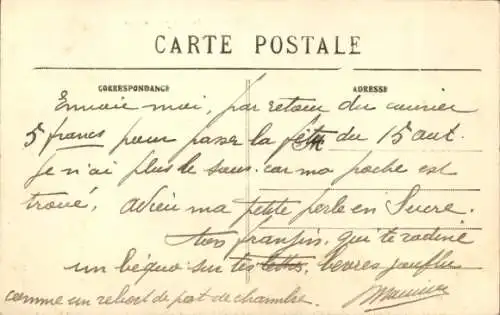 CARTE POSTALE
CORRESPONDANCE
ADRESSE
Envoie moi, par retour du courrier
5 francs pour passer la fête du 15 aout.
je n'ai plus de sous. car ma poche est
troué. adieu ma petite perle en Sucre.
ton frangin, qui te
un béquo sur tes lettres,
comme un rebort de pot de chambre.
Maurice